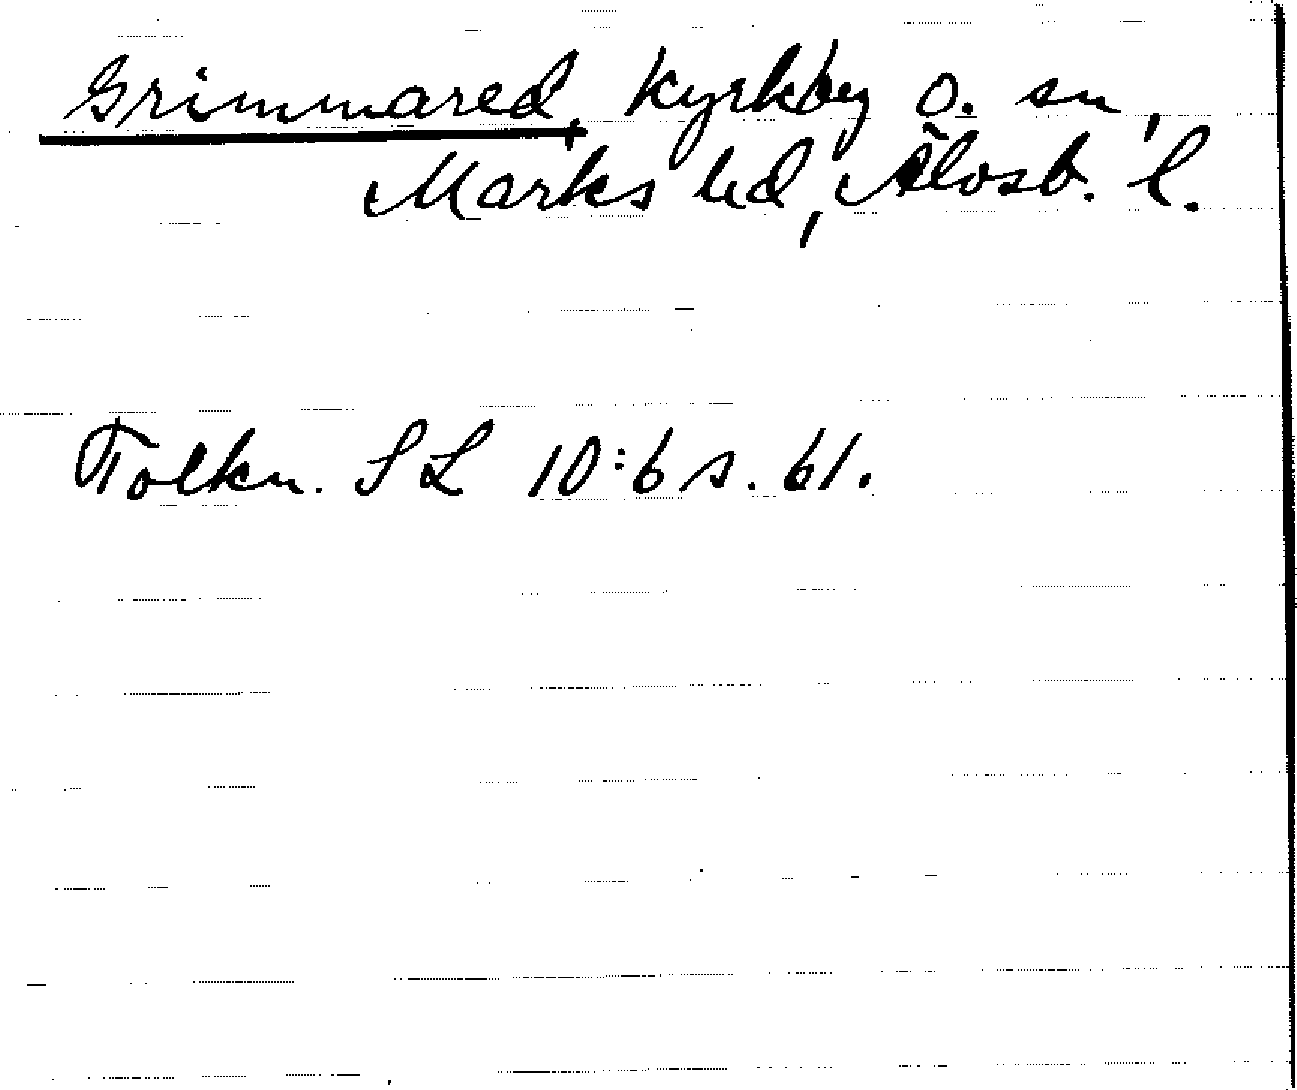 Grimmared, kyrkby o. sn,
Marks hd, Älvsb. l.
Tolkn. SL 10:6 s. 61.